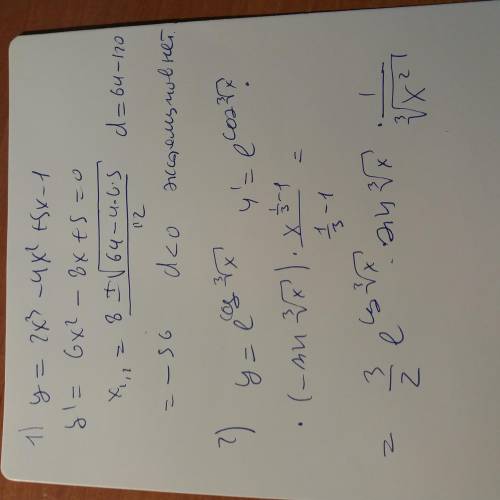 1) y = 2x³ - 4x² + 5x - 1
y' = 6x² - 8x + 5 = 0
x₁,₂ = 8 ± √(64 - 4·6·5) / 12    d = 64 - 120
= -56    d < 0    экстремумов нет.
2) y = e^(cos ∛x)    y' = e^(cos ∛x) ·
· (-sin ∛x) · x^(1/3 - 1) / (1/3 - 1) =
= 3/2 e^(cos ∛x) · sin ∛x · 1/∛(x²)